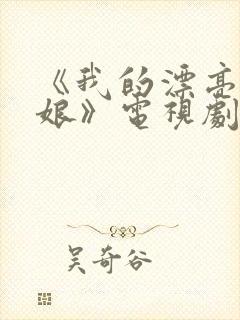 《我的漂亮
娘》電視劇
吴奇谷